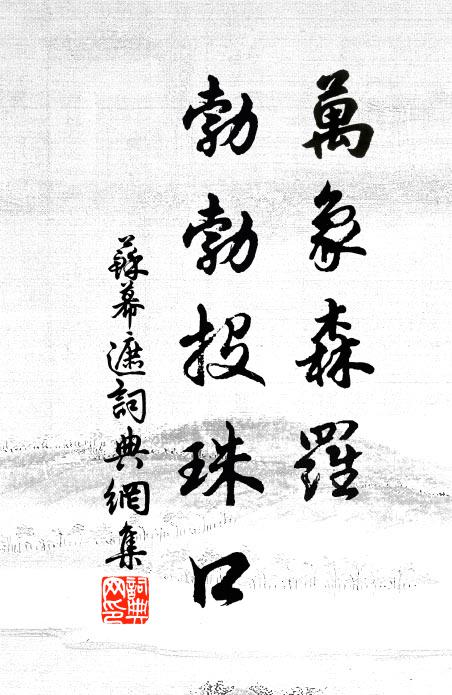 萬象森羅
勃勃投珠口
蘇幕遮詞典網集
詞典
网印